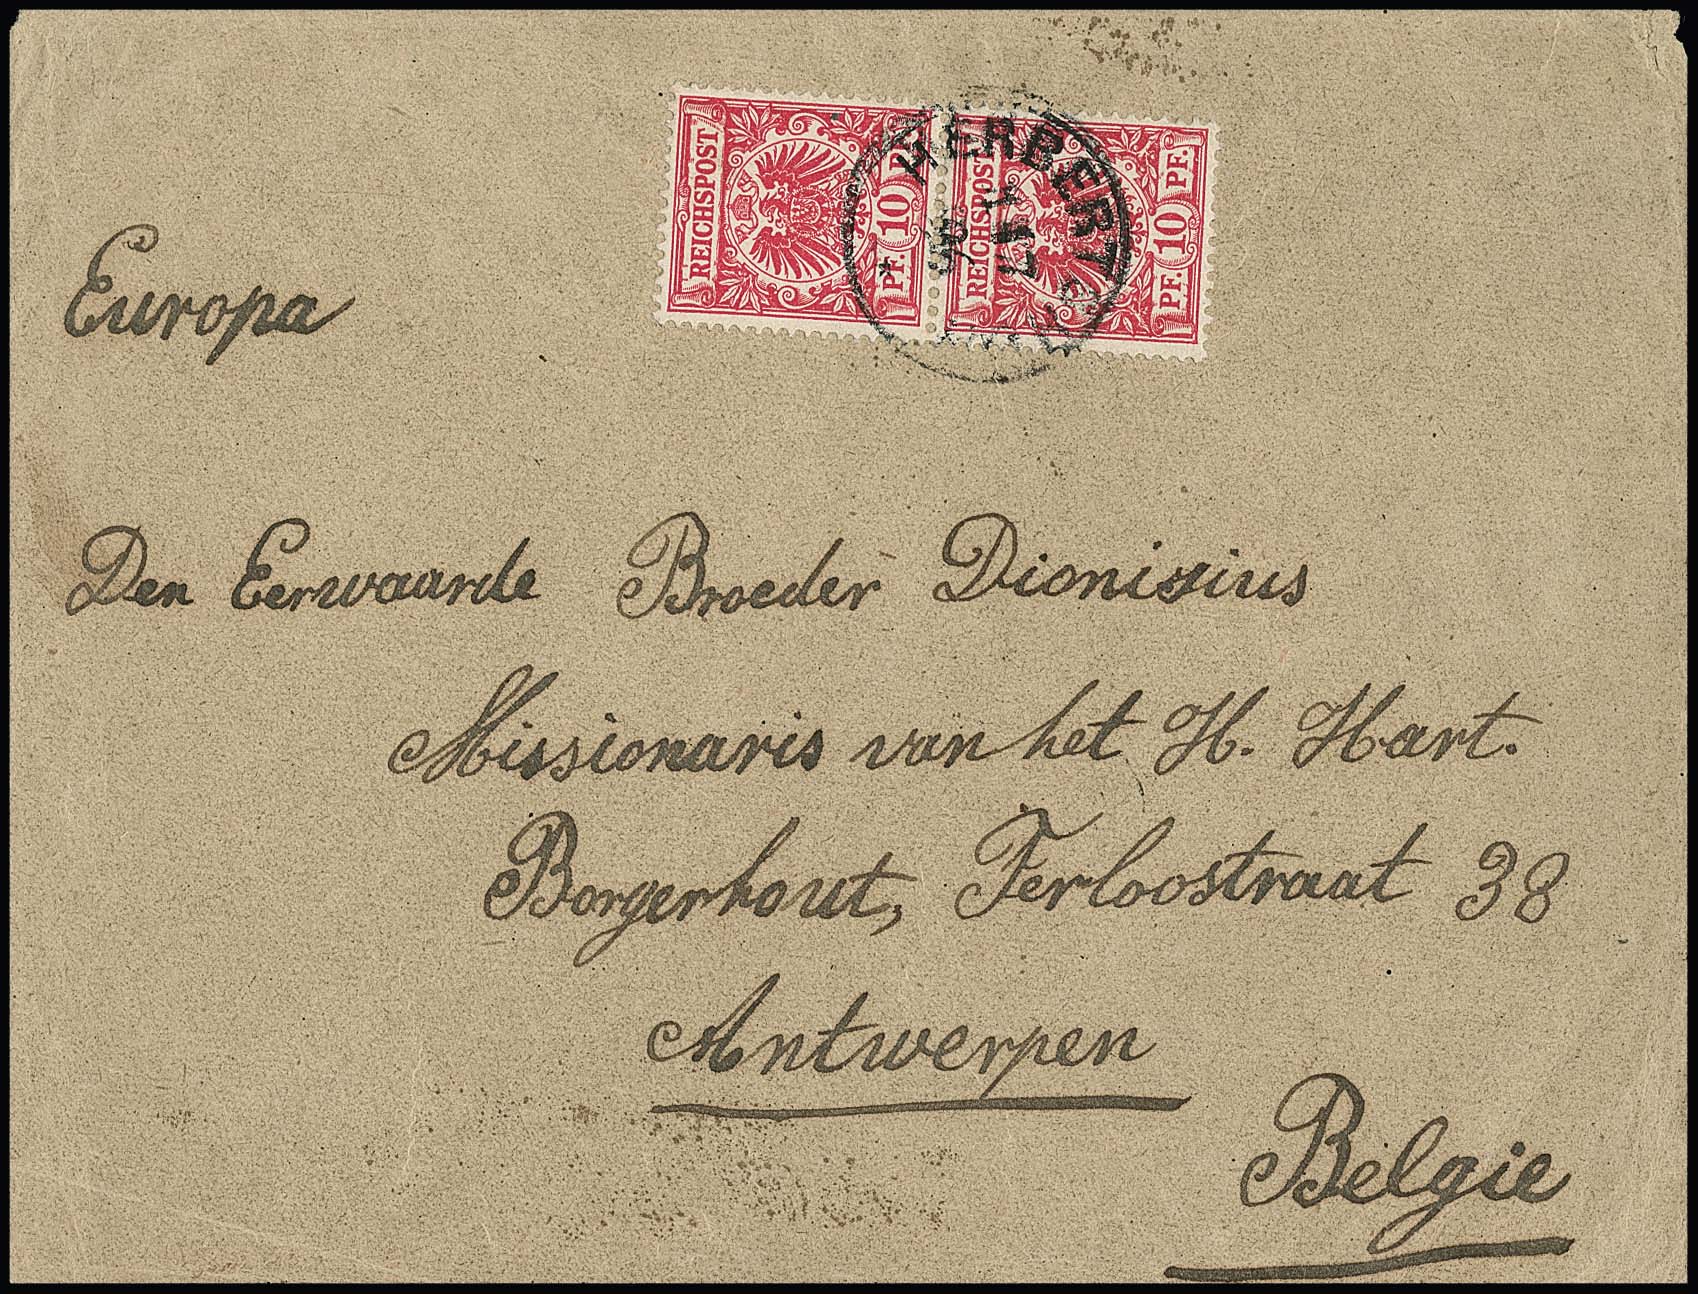 REICHSPOST
PF. 10 PF.
REICHSPOST
PF. 10 PF.
HERBERTSHÖHE
Europa
Den Eerwaarde Broeder Dionisius
Missionaris van het H. Hart.
Borgerhout, Ferloostraat 38
Antwerpen
Belgie